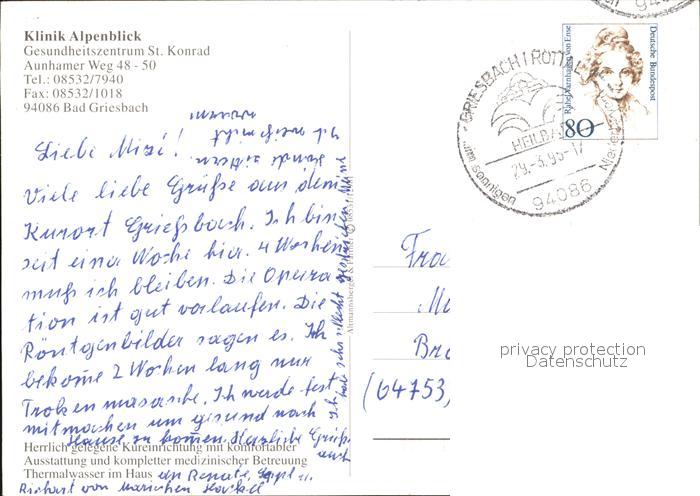 Klinik Alpenblick
Gesundheitszentrum St. Konrad
Aunhamer Weg 48 - 50
Tel.: 08532/7940
Fax: 08532/1018
94086 Bad Griesbach
Liebe Mizi!
Viele liebe Grüße aus dem
Kurort Grießbach. Ich bin
seit einer Woche hier. 4 Wochen
muß ich bleiben. Die Opera
tion ist gut verlaufen. Die
Röntgenbilder sagen es. Ich
bekome 2 Wochen lang nur
Troken masasche. Ich werde fest
mitmachen um gesund nach
Hause zu komen. Herzliche Grüße
auch
an Renate, Sepl u.
Richart von Mariechen
Herrlich gelegene Kureinrichtung mit komfortabler
Ausstattung und kompletter medizinischer Betreuung
Thermalwasser im Haus
Ich
habe sehr schlecht geschrieben
ich weiß nicht
warum
GRIESBACH I ROTTAL
HEILBAD
29.-3.95-17
94086
...im sonnigen
Rahel Varnhagen von Ense
Deutsche Bundespost
80
Fra
Br
(64753)
privacy protection
Datenschutz